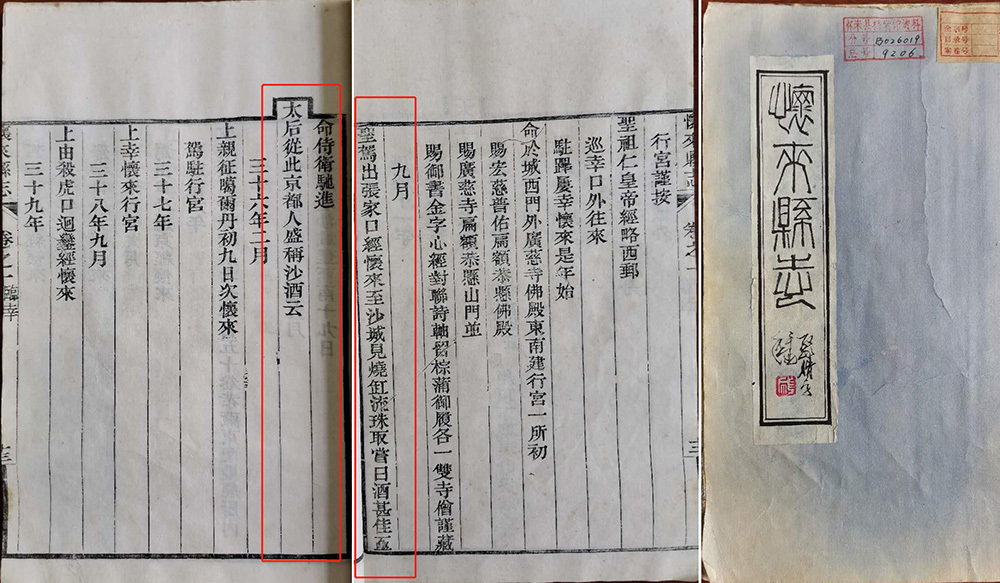 懷來縣志
B026019
9206
全宗号
目录号
案卷号
懷來縣志 卷之一
行宮謹按
聖祖仁皇帝經略西郵
巡幸口外往來
駐蹕屢幸懷來是年始
命於城西門外廣慈寺佛殿東南建行宮一所初
賜宏慈普佑扁額恭懸佛殿
賜廣慈寺扁額恭懸山門並
賜御書金字心經對聯詩軸留棕蒲御履各一雙寺僧謹藏
九月
聖駕出張家口經懷來至沙城見燒缸流珠取嘗曰酒甚佳亟
命侍衛馳進
太后從此京都人盛稱沙酒云
三十六年二月
上親征噶爾丹初九日次懷來
駕駐行宮
三十七年
上幸懷來行宮
三十八年九月
上由殺虎口迴鑾經懷來
三十九年
懷來縣志 卷之一 臨幸 十三